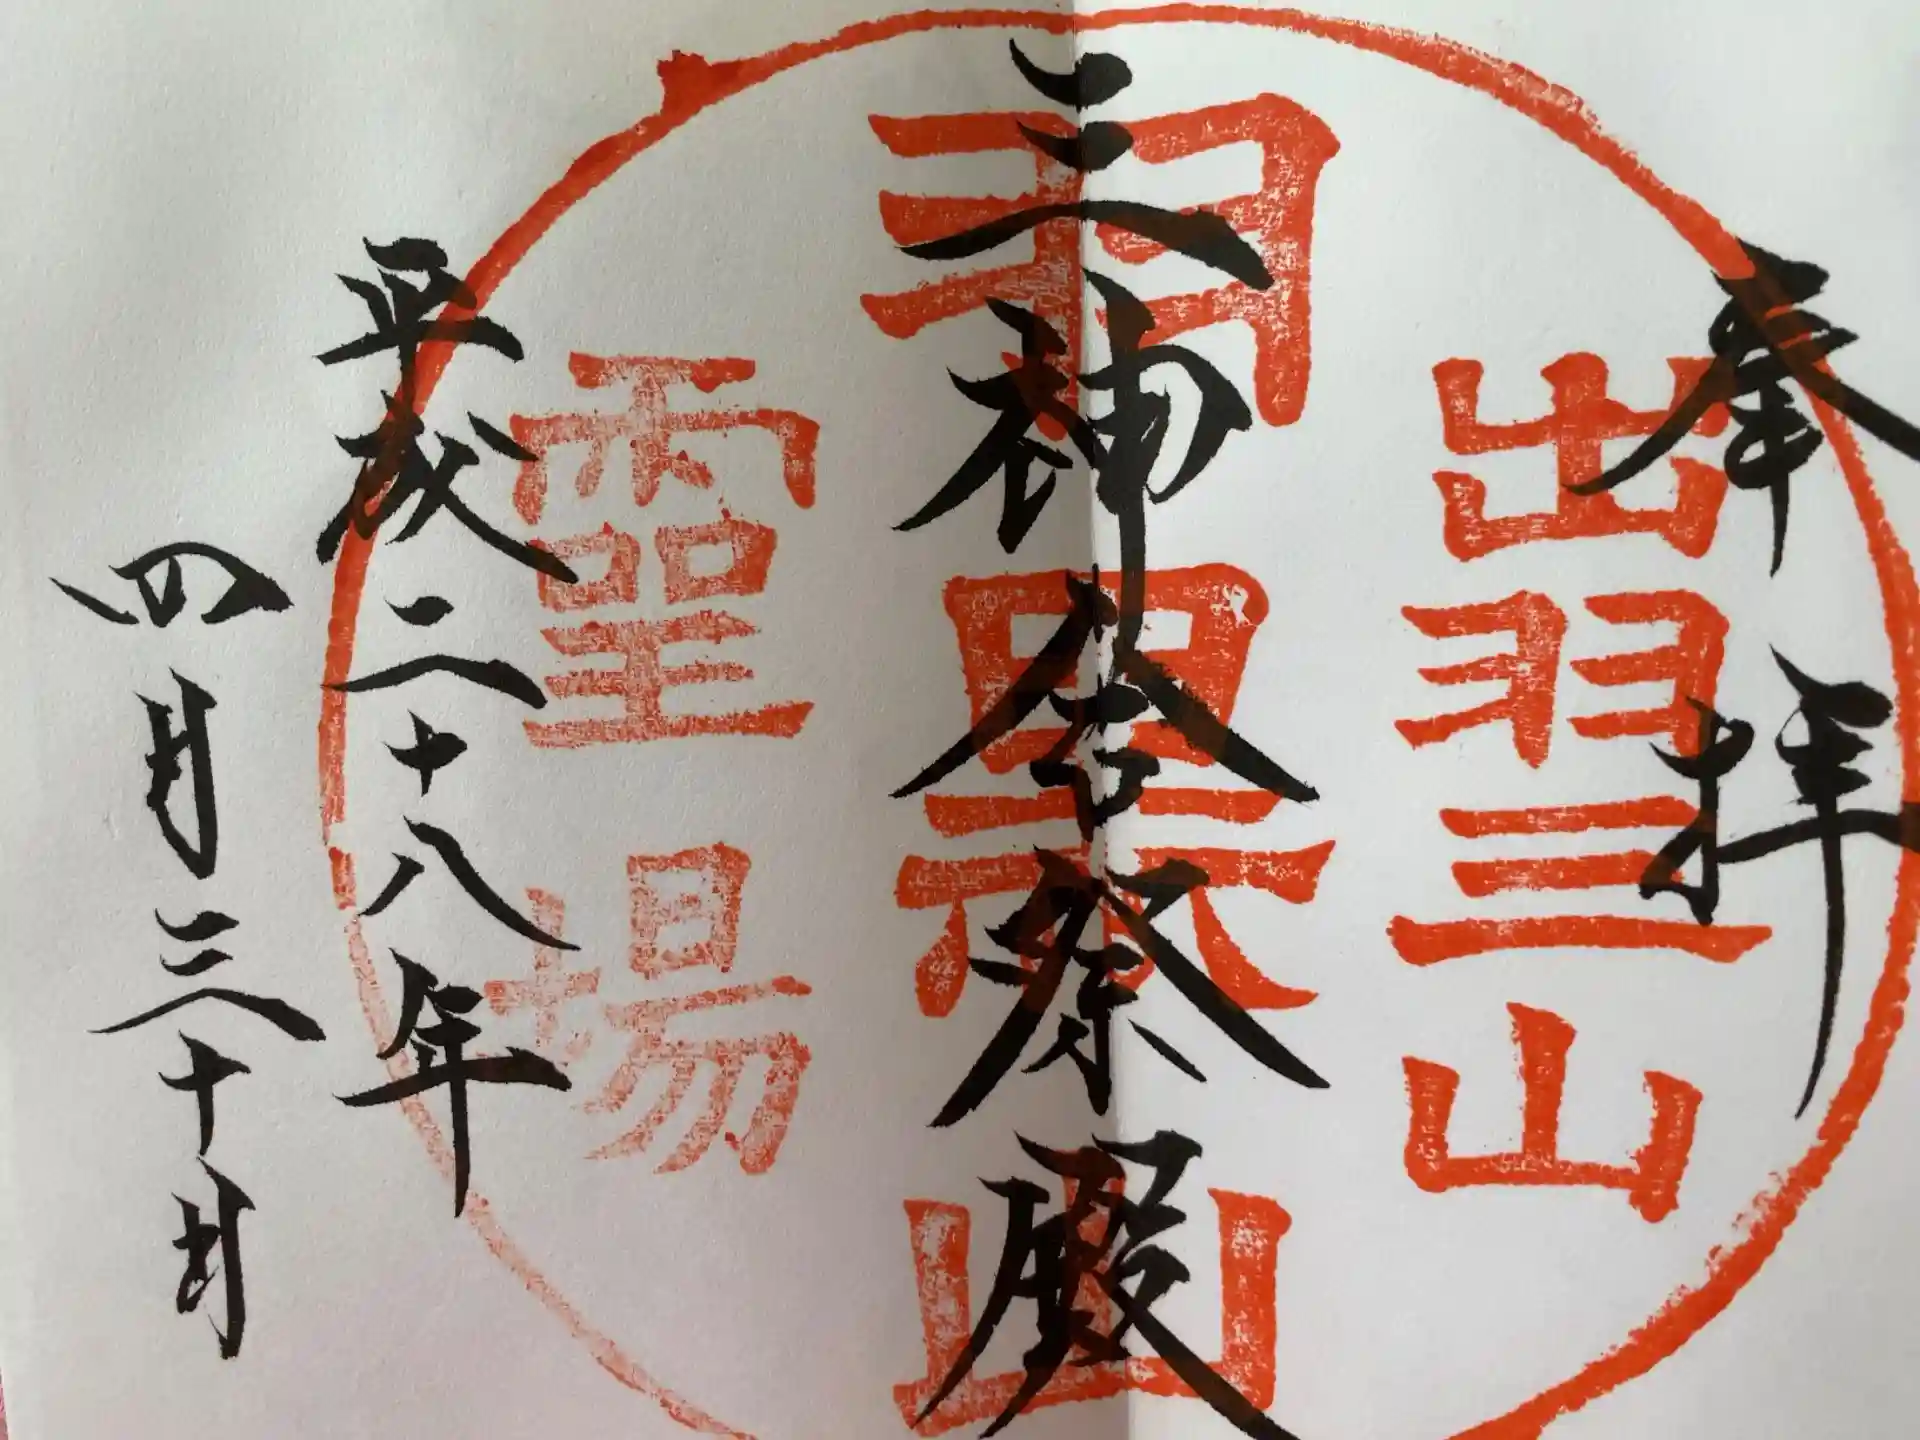 奉拝
出羽三山
三神合祭殿
羽黒山
霊場
平成二十八年
四月三十日